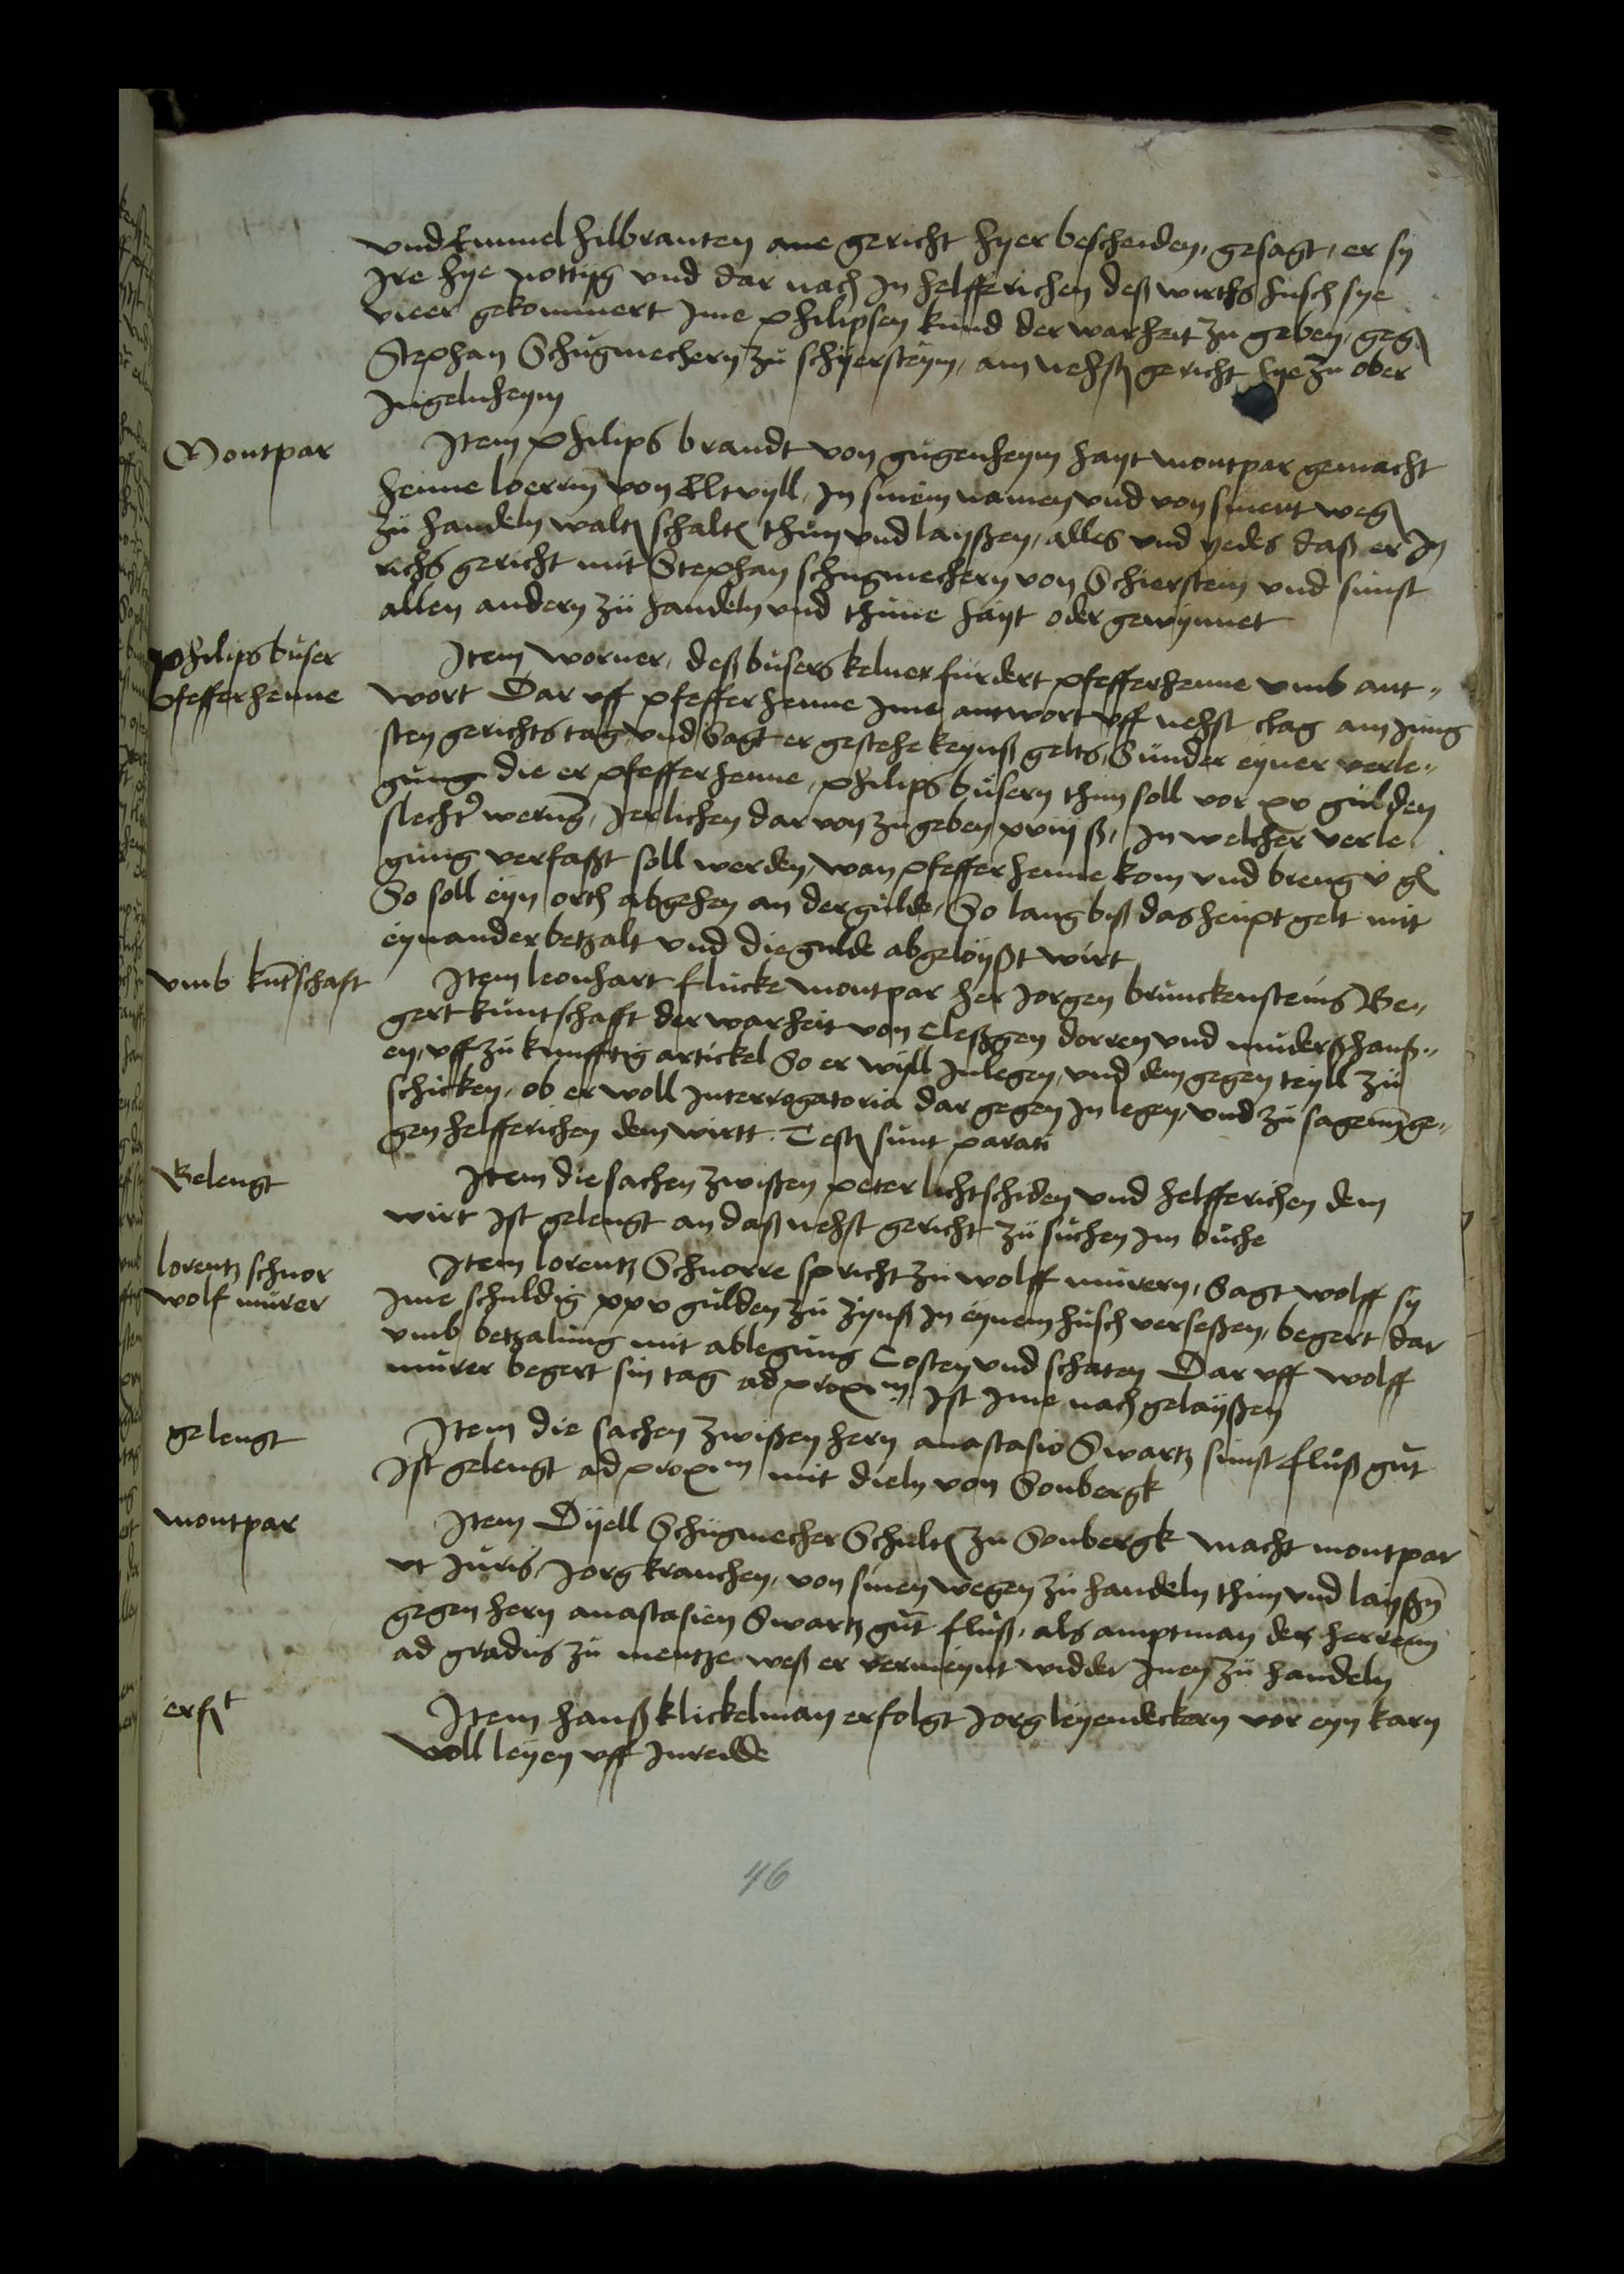 und Emmel hilbranten ane gericht hyer bescheiden, gesagt, er sy
Ire hye nottijg und dar nach In helfferichen deß wirths husch sye
vieer gekommert Ime philipsen kund der warheit zu geben, geg
Stephan Schugmechern zu schyersteym, am nehsten gericht hye zu ober
Ingelnheym
Montpar
Item philips brandt von gugenheym hayt montpar gemacht
henne loerrn von Eltvyll, In sinem namen und von sinent weg
zu handeln walten schalten thun und layßen, alles und yedes daß er In
richs gericht mit Stephan schugmechern von Schierstein und sunst
allen andern zu handeln und thune hayt oder gewynnet
philips buser
Pfefferhenne
Item worner, deß busers kelner furdert pfefferhenne umb ant„
wort Dar uff pfefferhenne Ime antwort uff nehst clag am Jung
sten gerichts tag, und Sagt er gestehe keynß gelts, Sunder eyner verle„
gung die er pfefferhenne, philips busern thun soll vor xv gulden
slecht werung, Jerlichen dar von zu geben xviij ß, In welcher verle
gung verfaßt soll werden, wan pfefferhenne kom und breng v gl
So soll eyn orth abgehen an der gulde, So lang biß das heupt gelt mit
eynander betzalt und die gulde abgeloyßt wirt
umb kutschaft
Item leonhart flucke montpar her Jorgen brunckensteins Be„
gert kuntschafft der warheit von Cleßgen dorren und muderßhanß„
en, uff zu kunfftig artickel So er will Inlegen, und dem gegen teyll zu
schicken, ob er woll Interrogatoria dar gegen In legen, und zu sagenn ge„
gen helfferichen dem wirtt. Testes sunt parati
Belengt
Item die sachen zwißen peter lichtschiden und helfferichen dem
wirt Ist gelengt an daß nehst gericht zu suchen Im buche
lorentz schnor
wolf murer
Item lorentz Schnorre spricht zu wolff murern, Sagt wolff sy
Ime schuldig xxv gulden zu zynß In eynem husch verseßen, begert dar
umb betzalung mit ablegung Costen und schaten Dar uff wolff
murer begert sin tag ad proxm Ist Ime nach gelayßen
gelengt
Item die sachen zwißen hern anastasio Swartz sunst fluß gut
Ist gelengt ad proxm mit dieln von Sonbergk
montpar
Item Dyell Schugmecher Schulten zu Sonbergk macht montpar
ut Juris, Jorg krauchen, von sinen wegen zu handeln thun und layßn
gegen hern anastasien Swartz gut fluß, als amptman der herrenn
ad gradus zu mentze weß er vermeynt widder Inen zu handeln
erft
Item hanß klickelman erfolgt Jorg leyendeckern vor eyn karn
voll leyen uff Inredde
46